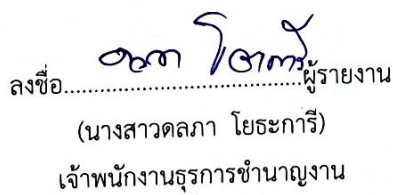 ดลภา โยธะการี
ลงชื่อ........................................ผู้รายงาน
(นางสาวดลภา โยธะการี)
เจ้าพนักงานธุรการชำนาญงาน